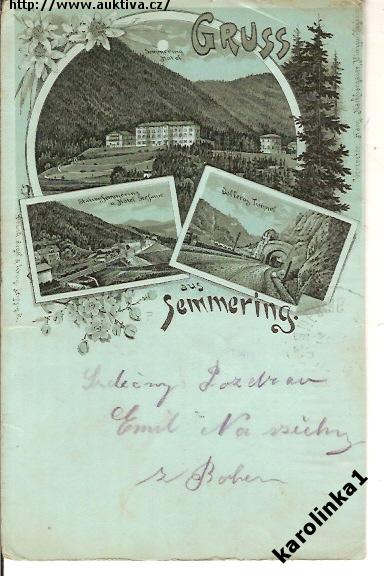 http://www.auktiva.cz/
GRUSS
Semmering
Hotel
Station Semmering
u. Hotel Stefanie
Polleros Tunnel
aus
Semmering.
Srdečný Pozdrav
Emil Na všechny
z Bohem
karolinka1